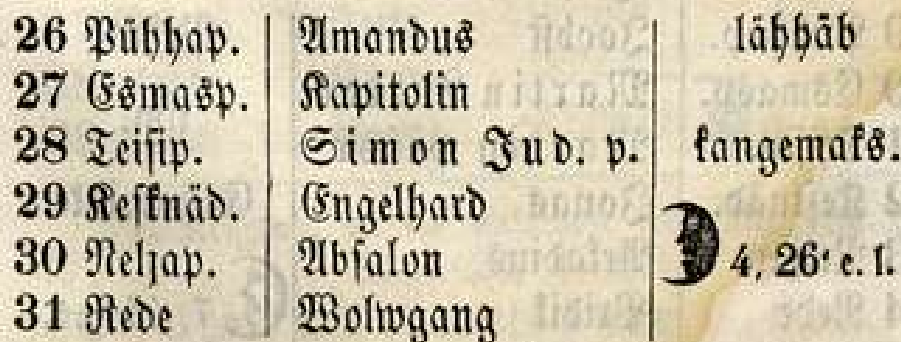 26 Pühhap. Amandus lähhäb
27 Esmasp. Kapitolin
28 Teisip. Simon Jud. p. kangemaks.
29 Kesknäd. Engelhard
30 Neljap. Absalon 4, 26' e. l.
31 Rede Wolwgang